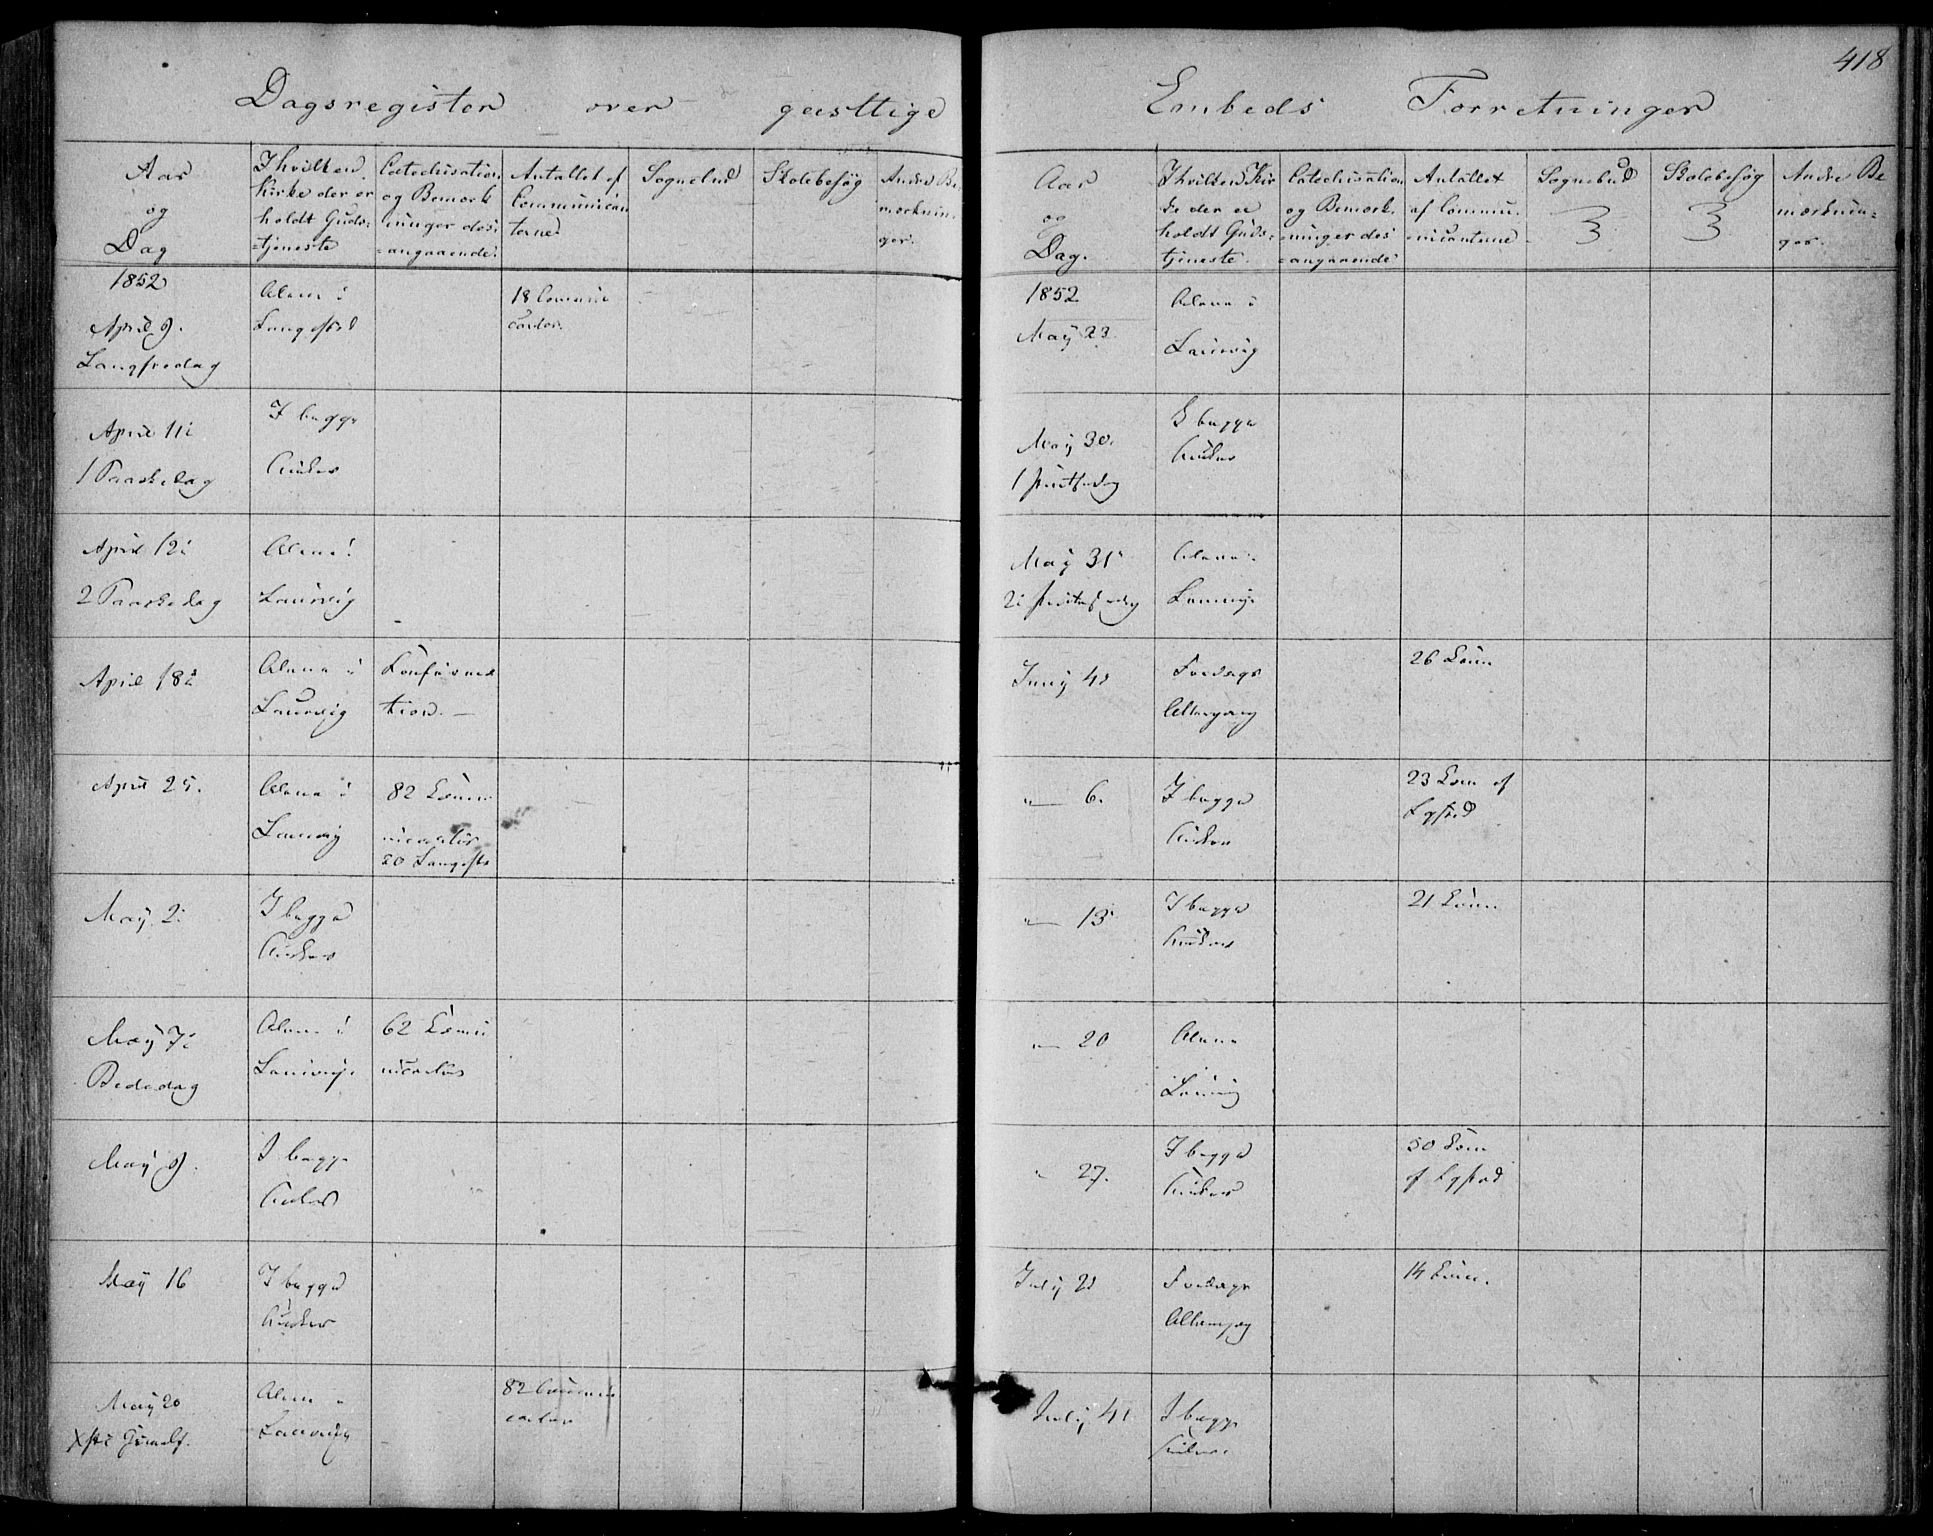 418
Dagsregister over geistlige Embeds Forretninger
Aar og Dag
I hvilken Kirke der er holdt Guds=tjeneste
Catechisation og Bemærkninger des=angaaende
Antallet af Communicanterne
Sognebud
Skolebesøg
Andre Bemærkninger
1852
April 9.
Langfredag
Alene i
Langestrd
18 Communi
canter
April 11
1 Paaskedag
I begge
Kirker
April 12
2 Paaskedag
Alene i
Laurvig
April 18
Alene i
Laurvig
Konfirma
tion. —
April 25.
Alene i
Laurvig
82 Commu
nicanter
20 Langestr
May 2
I begge
Kirker
May 7
Bededag
Alene i
Laurvig
62 Commu
nicanter
May 9.
I begge
Kirker
May 16
I begge
Kirker
May 20
Xsti Himelf.
Alene i
Laurvig
82 Commu
canter
Aar og Dag.
I hvilken Kirke der er holdt Guds=tjeneste.
Catechisation og Bemærkninger des=angaaende
Antallet af Communicanterne
Sognebud
Skolebesøg
Andre Bemærkninger.
1852
May 23
Alene i
Laurvig
May 30.
1 Pintsedag
I begge
Kirker
May 31
2 Pintsedag
Alene i
Laurvig
Juny 4
Fredags
Altergang
26 Com
" — 6.
I begge
Kirker
23 Com af
" — 13
I begge
Kirker
21 Com.
" — 20
Alene
Laurvig
" 27.
I begge
Kirker
50 Com
af
July 2
Fredags
Altergang
14 Com.
July 4
I begge
Kirker